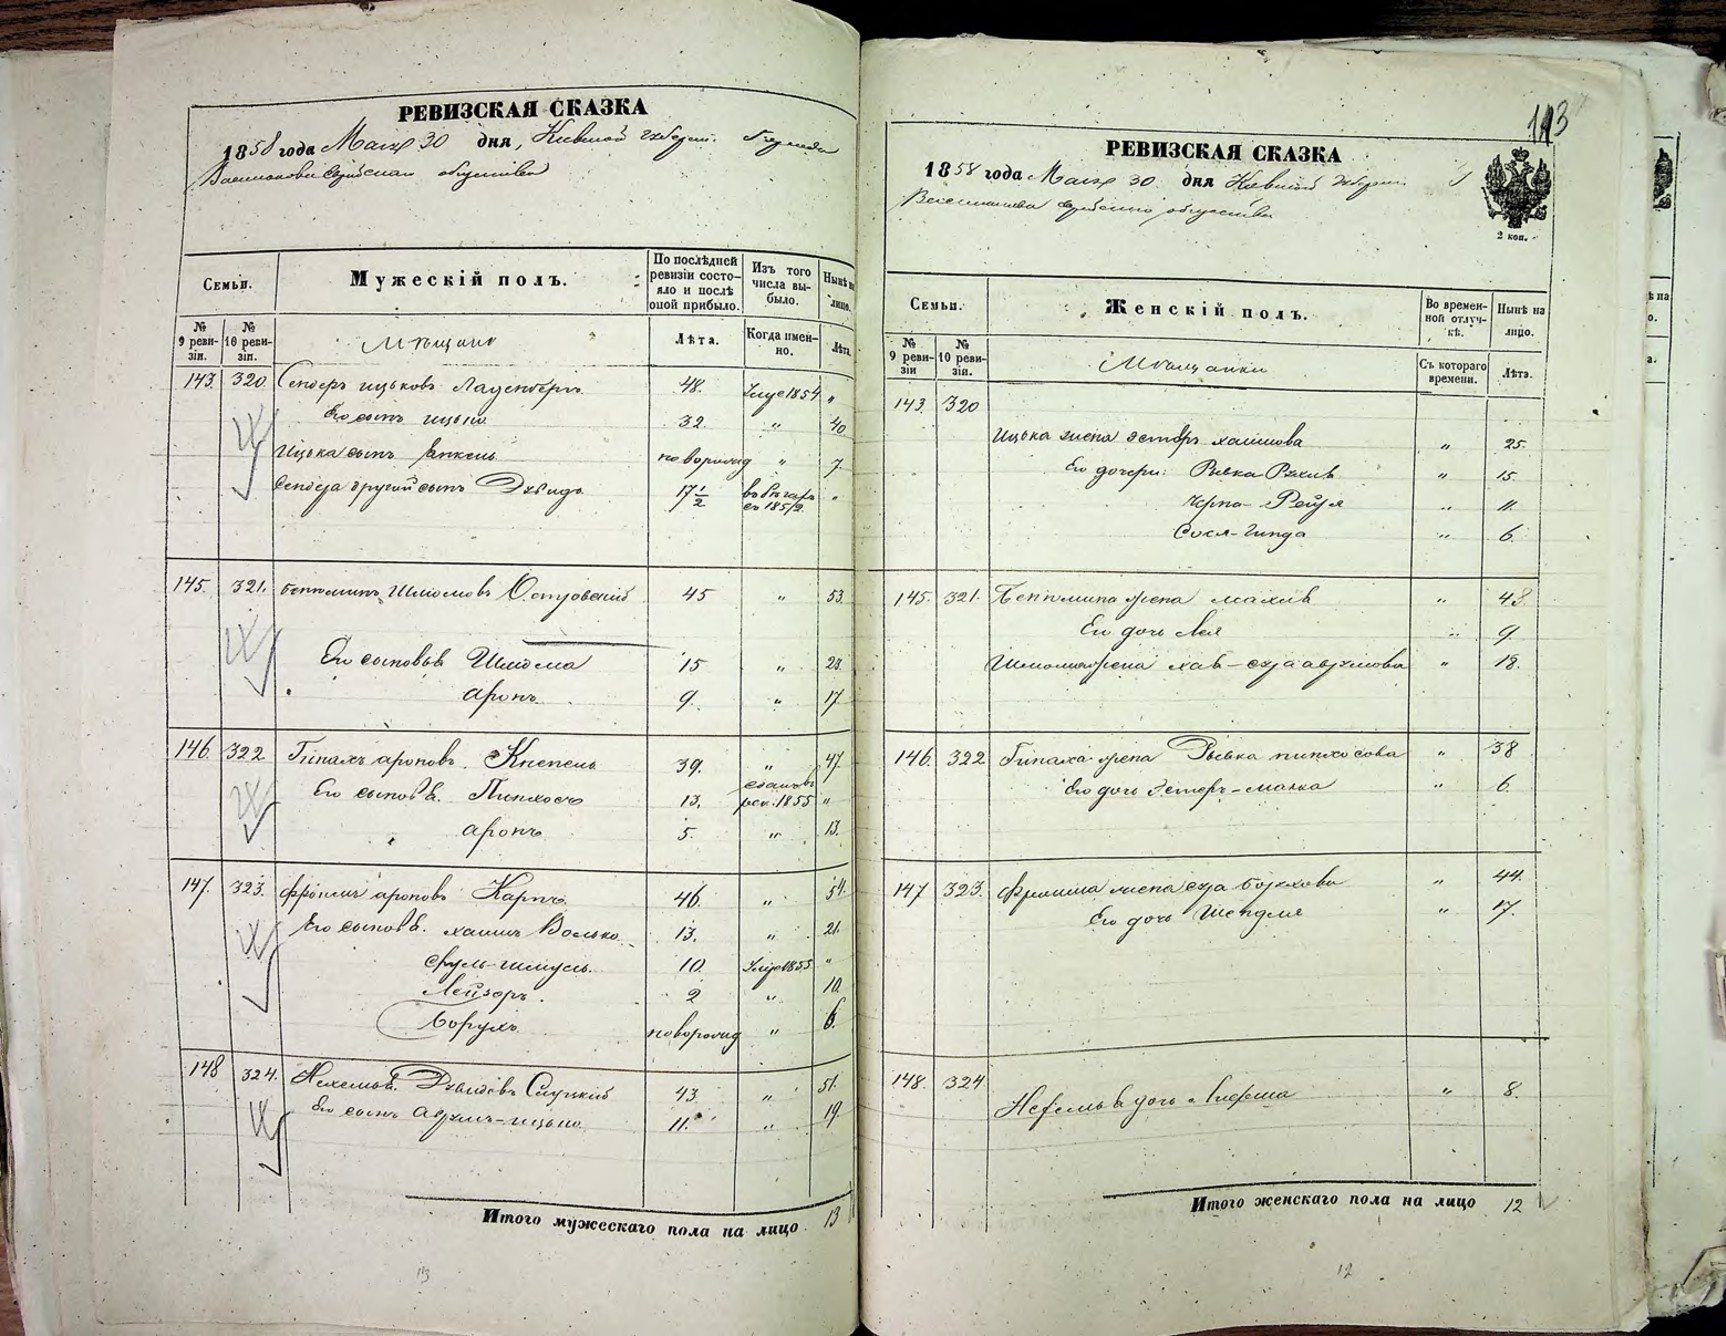 РЕВИЗСКАЯ СКАЗКА
1858 года Марта 30 дня, Киевской губерніи
Еврейскаго общества
Семьи.
Мужескій полъ.
По послѣдней ревизіи состояло и послѣ оной прибыло.
Изъ того числа выбыло.
Нынѣ на лицо.
№ 9 ревизіи.
№ 10 ревизіи.
Мѣщане
Лѣта.
Когда именно.
Лѣта.
143. 320. Сендеръ Ицьковъ 48. 1854 "
Его сынъ Ицько 32. " 40.
Ицька сынъ Янкель новорожд " 7.
Сендера другой сынъ Дувидъ 17 1/2 въ бѣгахъ съ 1852 "
145. 321. Беніоминъ Шліомовъ Островскій 45 " 53.
Его сыновья Шліома 15 " 23.
Аронъ 9. " 17
146. 322. Ароновъ 39. " 47.
Его сыновья Пинхосъ 13. рек. 1855 "
Аронъ 5. " 13.
147. 323. Фроимъ Ароновъ Карпъ 46. " 54.
Его сыновья. Хаимъ Волько 13. " 21.
Сруль-Шмуль. 10. 1855 "
Лейзоръ. 2 " 10.
Борухъ новорожд " 6.
148 324. Нехемья Дувидовъ Слуцкій 43. " 51.
Его сынъ Аврумъ-Ицько 11. " 19.
Итого мужескаго пола на лицо 13
113
113
РЕВИЗСКАЯ СКАЗКА
1858 года Марта 30 дня Киевской губерніи
Еврейскаго общества
2 коп.
Семьи.
Женскій полъ.
Во временной отлучкѣ.
Нынѣ на лицо.
№ 9 ревизіи
№ 10 ревизіи.
Мѣщанки
Съ котораго времени.
Лѣта.
143. 320
Ицька жена Эстеръ Хаимова " 25.
Его дочери: Рывка Рухля " 15.
Черна-Рейзя " 11.
Сося-Гинда " 6.
145. 321. Беніомина жена Малка " 48.
Его дочь Лея " 9.
Шліомы жена Хая-Сура Аврумова " 18.
146. 322 жена Рывка Пинхосова " 38
Его дочь Эстеръ-Малка " 6.
147 323. Фроима жена Сура Борухова " 44.
Его дочь Шендля " 17.
148. 324
Нехемья дочь " 8.
Итого женскаго пола на лицо 12
12